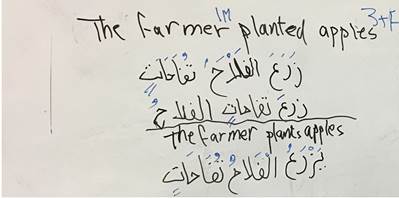 The farmer 1M planted apples 3+F
زَرَعَ الفَلَاحُ تُفَاحَاتٍ
زرعَ تفاحاتٍ الفلاحُ
The farmer plants apples
يَزْرَعُ الْفَلَاحُ تُفَّاحَاتٍ